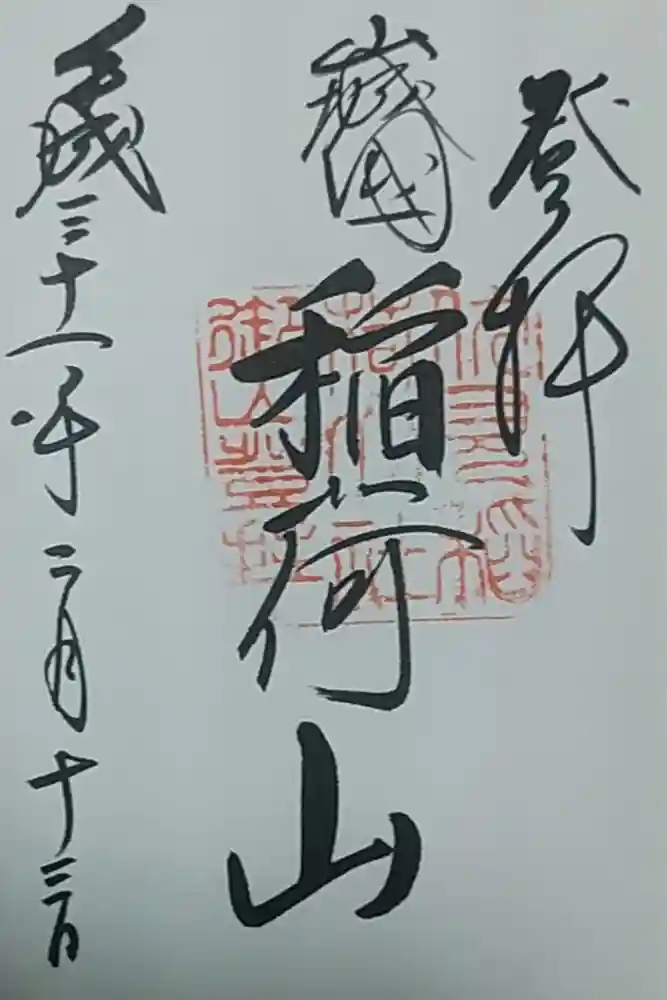 登拝
山城國
稲荷山
平成三十一年二月十三日